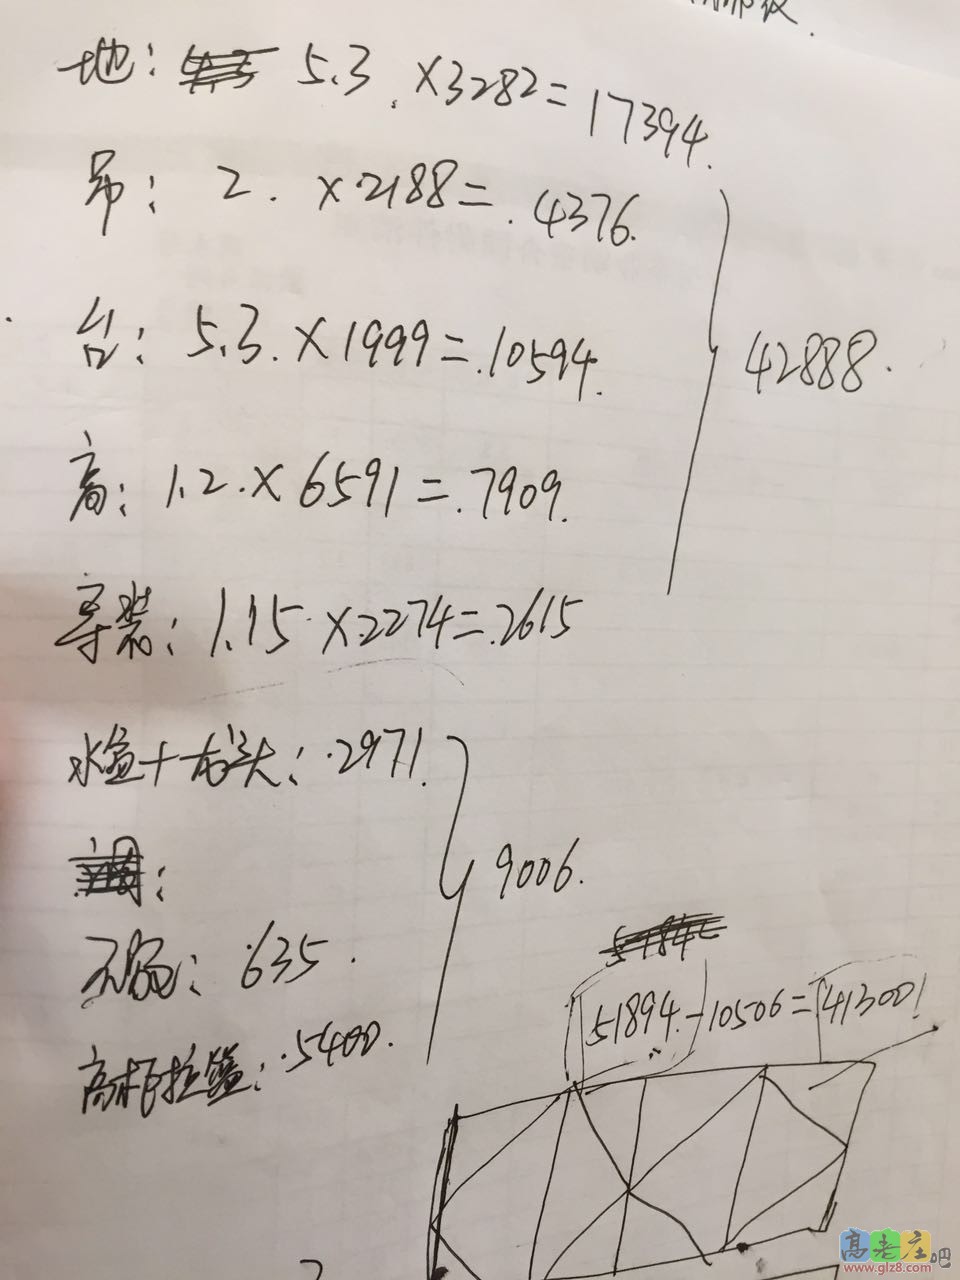 地: 5.3 ×3282=17394.
吊: 2. ×2188=.4376.
台: 5.3.×1999=.10594.
42888.
高: 1.2.×6591=.7909.
装: 1.15 ×2274=.2615
水盆+龙头: .2971.
:
9006.
: 635.
51894.-10506=41300!
高柜拉篮: .5400.
高老庄吧
www.glz8.com